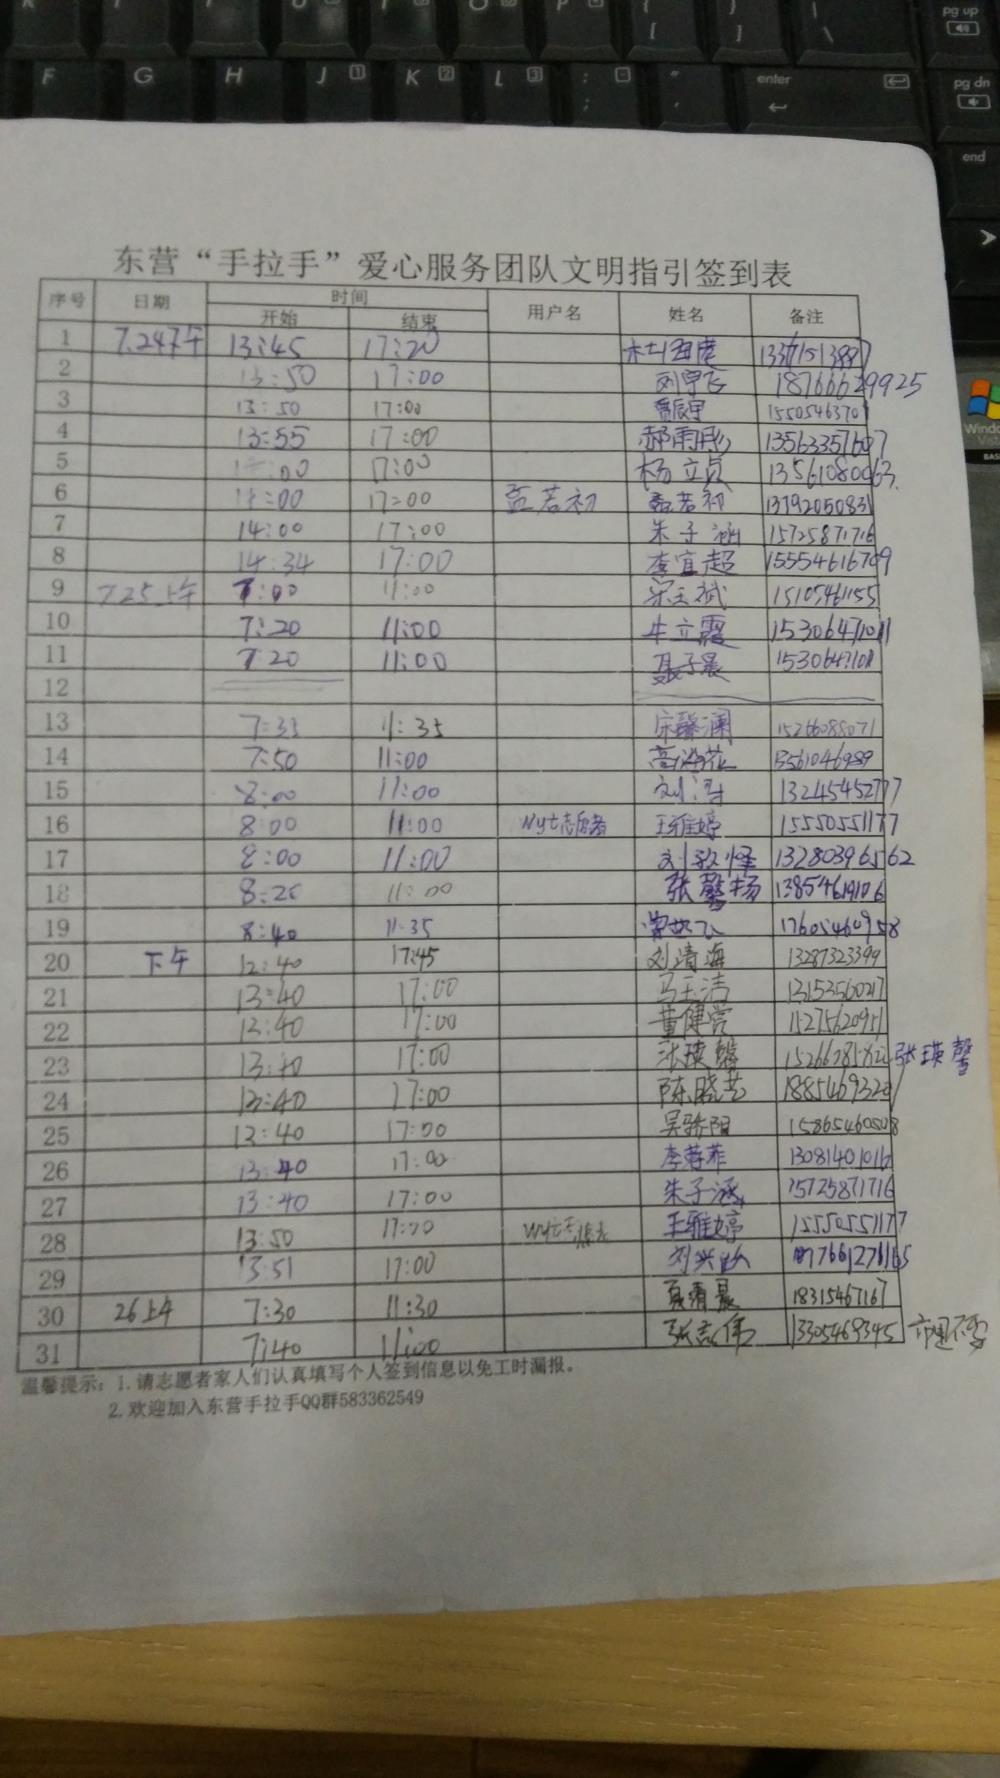 F G H J K L enter pg up pg dn end
东营“手拉手”爱心服务团队文明指引签到表
序号 日期 时间 用户名 姓名 备注
开始 结束
1 7.24下午 13:45 17:20
2 13:50 17:00 18766629925
3 13:50 17:00 15505463701
4 13:55 17:00 郝雨彤 13563357607
5 17:00 杨立贞 13561080063
6 14:00 17:00 孟若初 孟若初 13792050831
7 14:00 17:00 朱子涵 15725871716
8 14:34 17:00 李宜超 15554616709
9 7.25上午 7:00 11:00 15105461155
10 7:20 11:00 牛立霞 15306471011
11 7:20 11:00 聂子晨 15306471011
12
13 7:35 11:35 宋馨澜 15266088071
14 7:50 11:00 13561046989
15 8:00 11:00 刘涛 13245452777
16 8:00 11:00 王雅婷 15550551177
17 8:00 11:00 13280396562
18 8:20 11:00 张馨扬 13854619106
19 8:40 11:35 17605460958
20 下午 12:40 17:45 刘清海 13287323399
21 13:40 17:00 马玉洁
22 13:40 17:00 15275620911
23 13:40 17:00 张瑛馨 张瑛馨
24 13:40 17:00 陈晓艺
25 13:40 17:00 吴骄阳 15865460508
26 13:40 17:00 13081401016
27 13:40 17:00 朱子涵 15725871716
28 13:50 17:00 王雅婷 15550551177
29 13:51 17:00
30 26上午 7:30 11:30 18315467167
31 7:40 11:00 张志伟 13305469345
温馨提示：1.请志愿者家人们认真填写个人签到信息以免工时漏报。
2.欢迎加入东营手拉手QQ群583362549